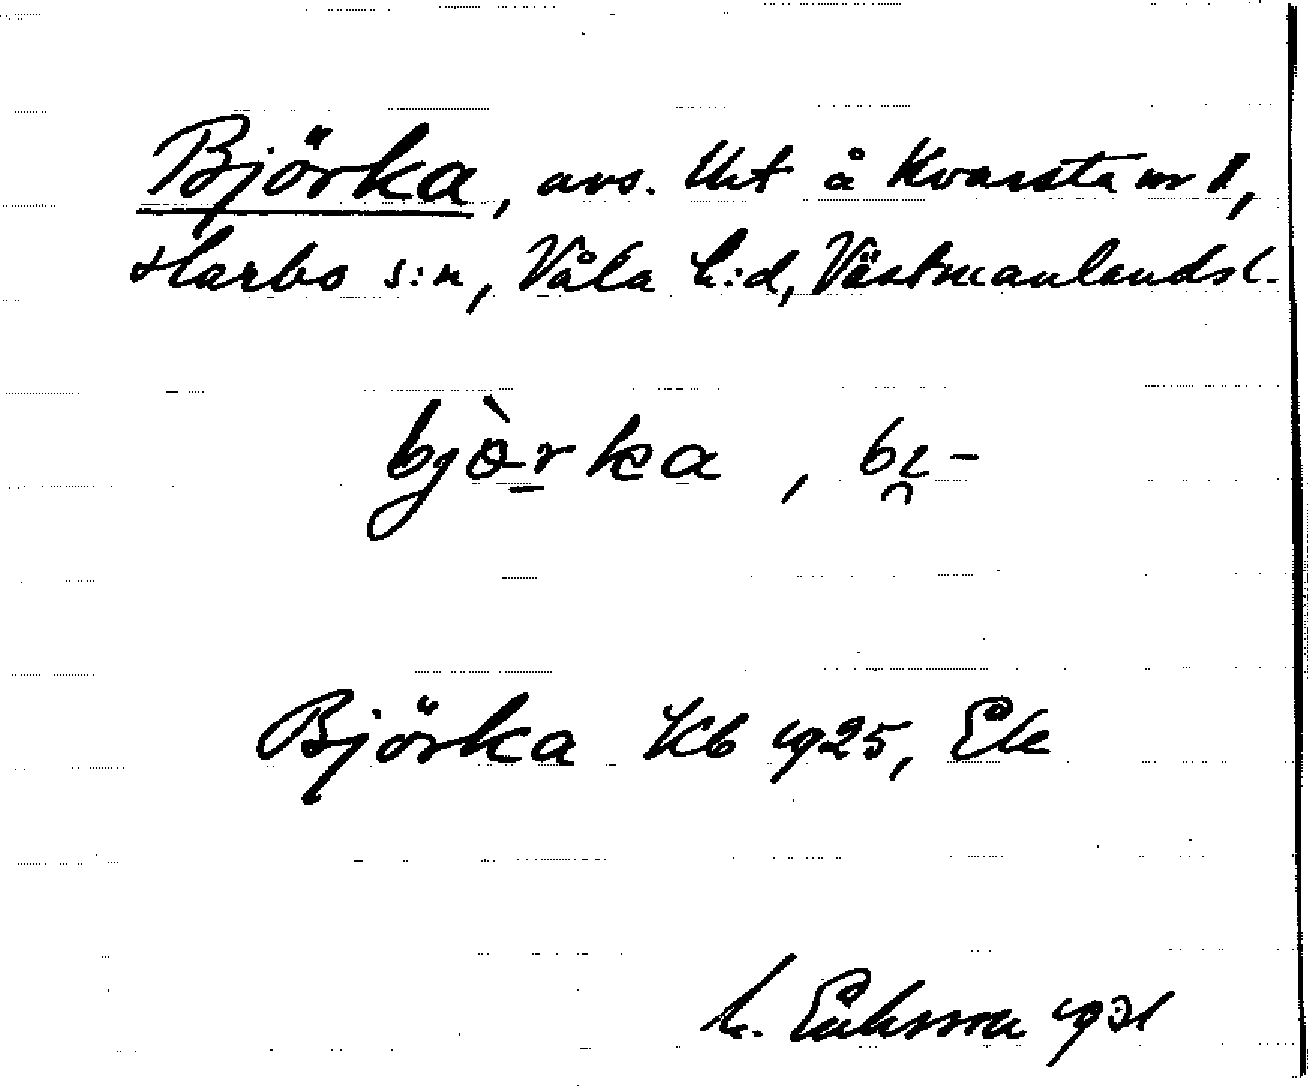 Björka, avs. lht å Kvarsta nr 1,
Harbo s:n, Våla h:d, Västmanlandsl.
bjò̱rka, bi̯-
Björka Kb 1925, Ek
h. Eriksson 1931